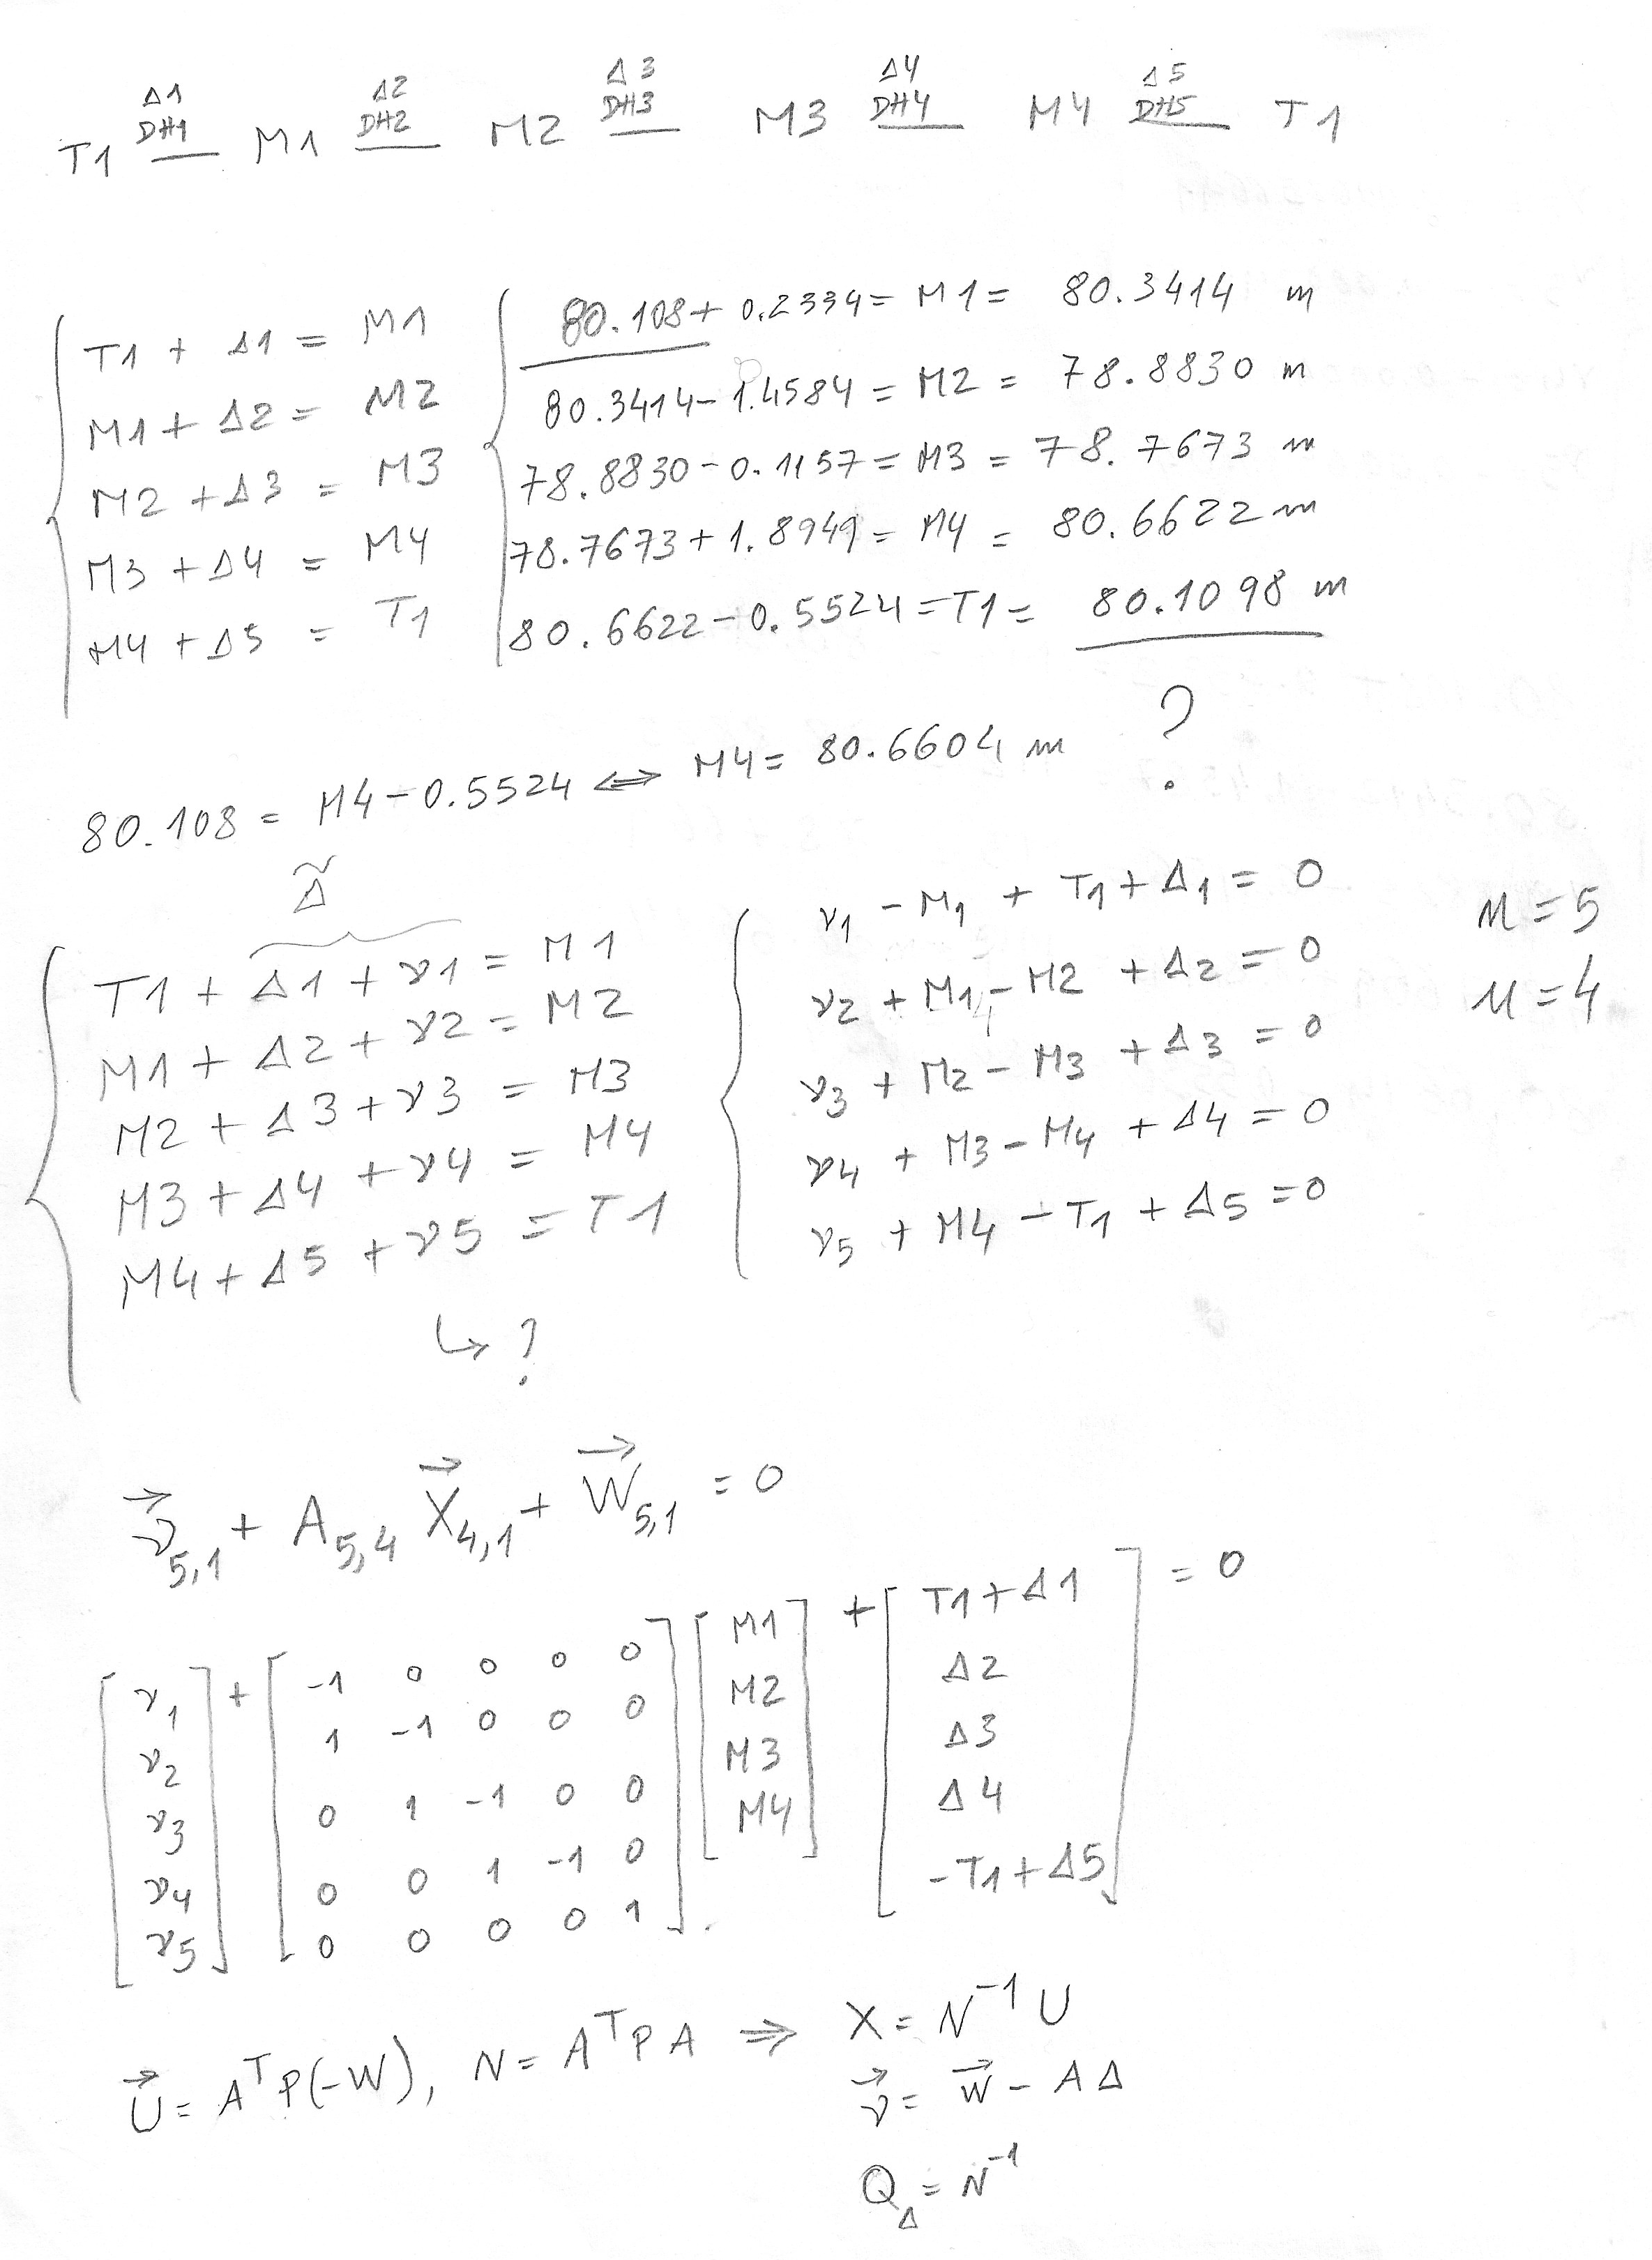 Δ1 Δ2 Δ3 Δ4 Δ5
DH1 DH2 DH3 DH4 DH5
T1 — M1 — M2 — M3 — M4 — T1
T1 + Δ1 = M1
M1 + Δ2 = M2
M2 + Δ3 = M3
M3 + Δ4 = M4
M4 + Δ5 = T1
80.108 + 0.2334 = M1 = 80.3414 m
80.3414 - 1.4584 = M2 = 78.8830 m
78.8830 - 0.1157 = M3 = 78.7673 m
78.7673 + 1.8949 = M4 = 80.6622 m
80.6622 - 0.5524 = T1 = 80.1098 m
?
80.108 = M4 - 0.5524 ⇔ M4 = 80.6604 m
Δ̃
T1 + Δ1 + v1 = M1
M1 + Δ2 + v2 = M2
M2 + Δ3 + v3 = M3
M3 + Δ4 + v4 = M4
M4 + Δ5 + v5 = T1
↳ ?
v1 - M1 + T1 + Δ1 = 0
v2 + M1 - M2 + Δ2 = 0
v3 + M2 - M3 + Δ3 = 0
v4 + M3 - M4 + Δ4 = 0
v5 + M4 - T1 + Δ5 = 0
n = 5
u = 4
v⃗5,1 + A5,4 X⃗4,1 + W⃗5,1 = 0
[v1 v2 v3 v4 v5] + [
-1 0 0 0 0
1 -1 0 0 0
0 1 -1 0 0
0 0 1 -1 0
0 0 0 0 1
] [M1 M2 M3 M4] + [
T1 + Δ1
Δ2
Δ3
Δ4
-T1 + Δ5
] = 0
U⃗ = AᵀP(-W), N = AᵀPA ⇒ X = N⁻¹U
v⃗ = w⃗ - AΔ
QΔ = N⁻¹